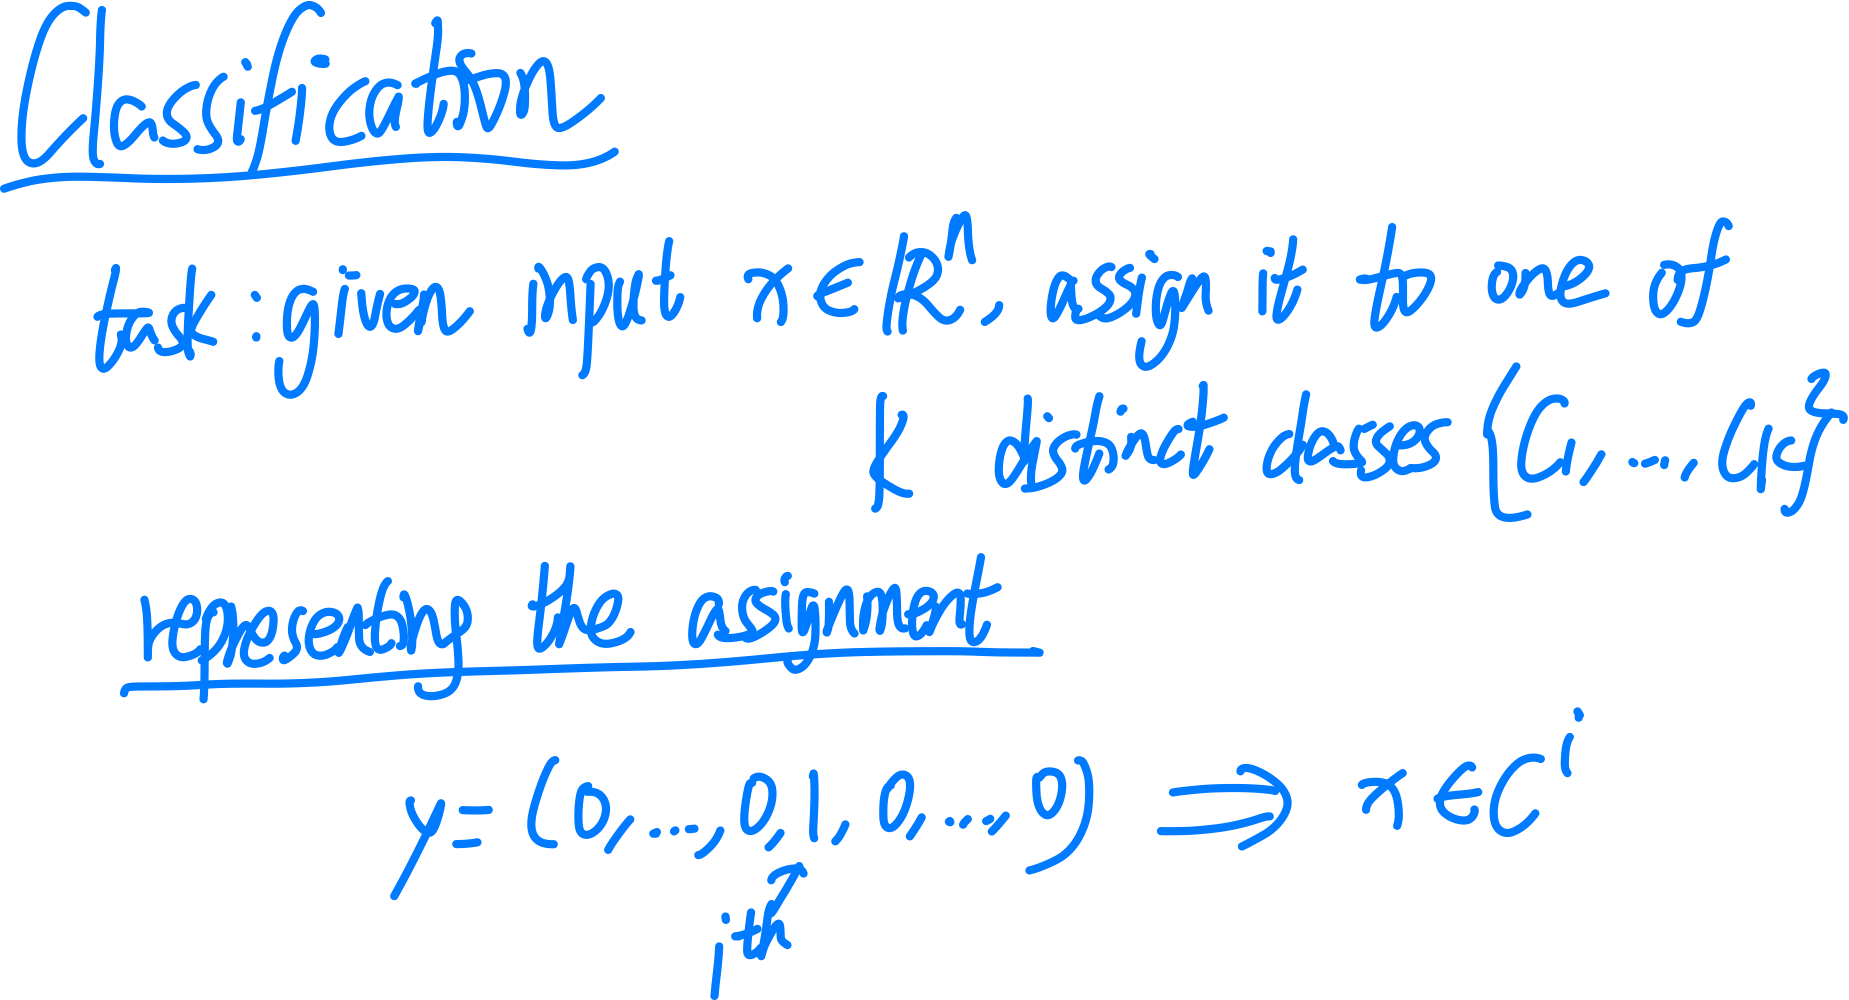 Classification
task: given input x ∈ ℝⁿ, assign it to one of
K distinct classes {C₁, ..., Cₖ}
representing the assignment
y = (0, ..., 0, 1, 0, ..., 0) ⟹ x ∈ Cⁱ
iᵗʰ